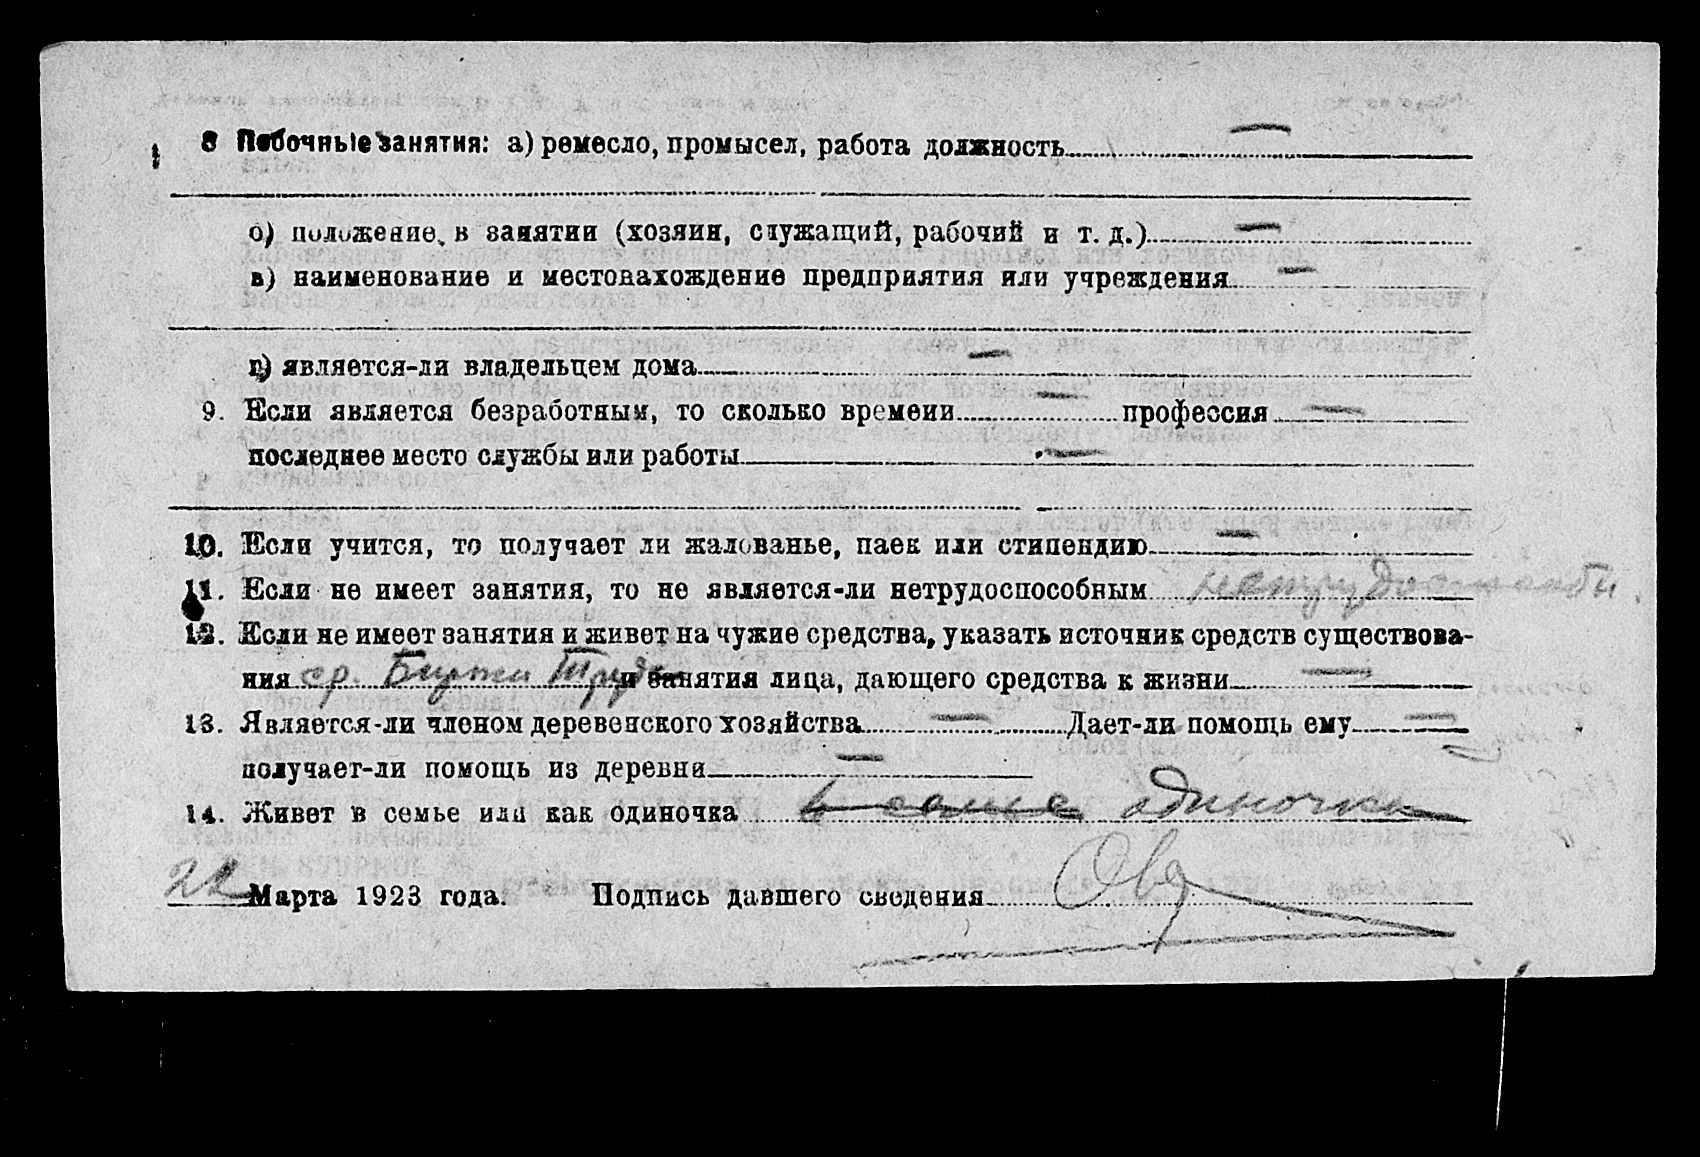 8 Побочные занятия: а) ремесло, промысел, работа должность —
б) положение в занятии (хозяин, служащий, рабочий и т. д.) —
в) наименование и местонахождение предприятия или учреждения —
г) является-ли владельцем дома —
9. Если является безработным, то сколько времени — профессия —
последнее место службы или работы —
10. Если учится, то получает ли жалованье, паек или стипендию —
11. Если не имеет занятия, то не является-ли нетрудоспособным
12. Если не имеет занятия и живет на чужие средства, указать источник средств существова-
ния ср. Биржи Труда и занятия лица, дающего средства к жизни —
13. Является-ли членом деревенского хозяйства — Дает-ли помощь ему —
получает-ли помощь из деревни —
14. Живет в семье или как одиночка в семье одиночка
22 Марта 1923 года. Подпись давшего сведения